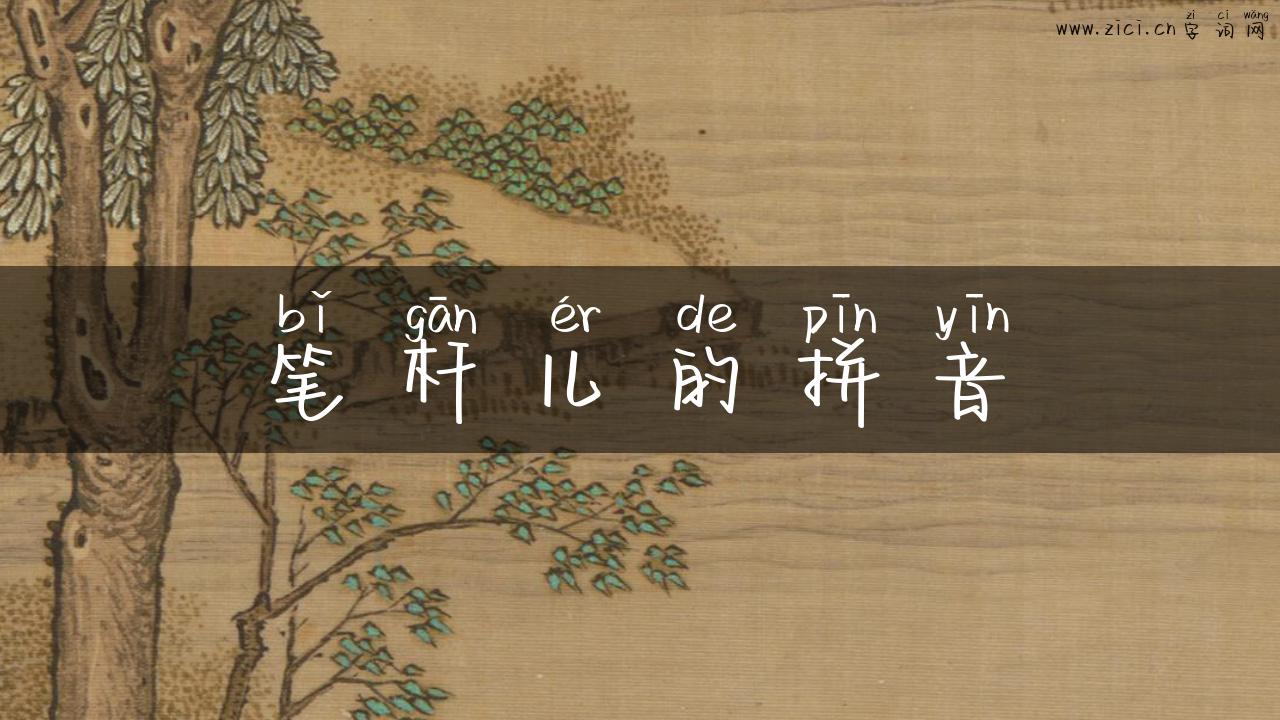 zì cí wǎng
www.zici.cn 字词网
bǐ gān ér de pīn yīn
笔杆儿的拼音